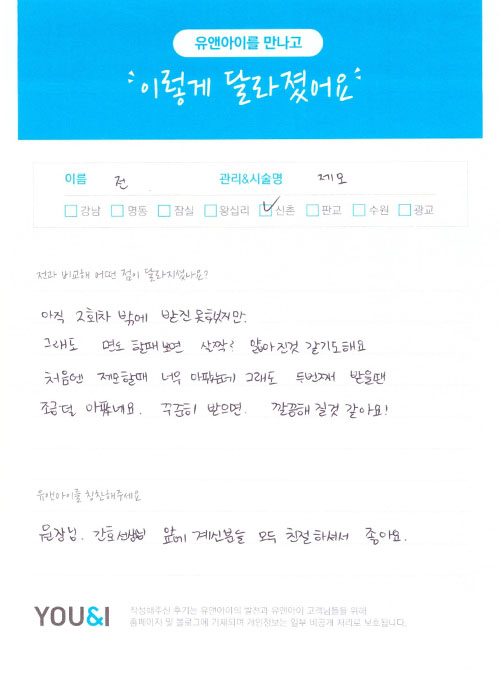 유앤아이를 만나고
이렇게 달라졌어요
이름 전 관리&시술명 제모
강남 명동 잠실 왕십리 신촌 판교 수원 광교
전과 비교해 어떤 점이 달라지셨나요?
아직 2회차 밖에 받진 못했지만.
그래도 면도 할때 보면 살짝? 얇아진것 같기도해요
처음엔 제모할때 너무 아팠는데 그래도 두번째 받을땐
조금덜 아프네요. 꾸준히 받으면. 깔끔해 질것 같아요!
유앤아이를 칭찬해주세요
원장님. 간호선생님 앞에 계신분들 모두 친절하셔서 좋아요.
YOU&I 작성해주신 후기는 유앤아이의 발전과 유앤아이 고객님들을 위해
홈페이지 및 블로그에 기재되며 개인정보는 일부 비공개 처리로 보호됩니다.